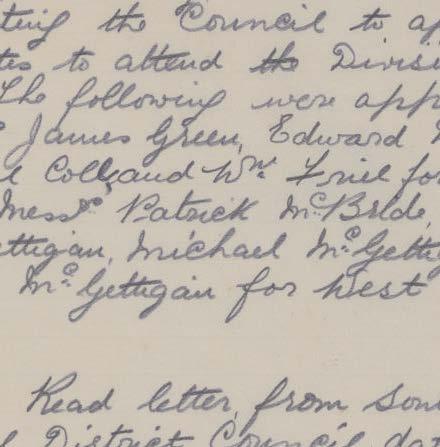 ting the Council to ap
tes to attend the Divisi
The following were appo
James Green, Edward
l Coll, and Wm. Friel for
Messrs Patrick McBride,
ettigan, Michael McGettig
McGettigan for West
Read letter from Som
l District Council dat